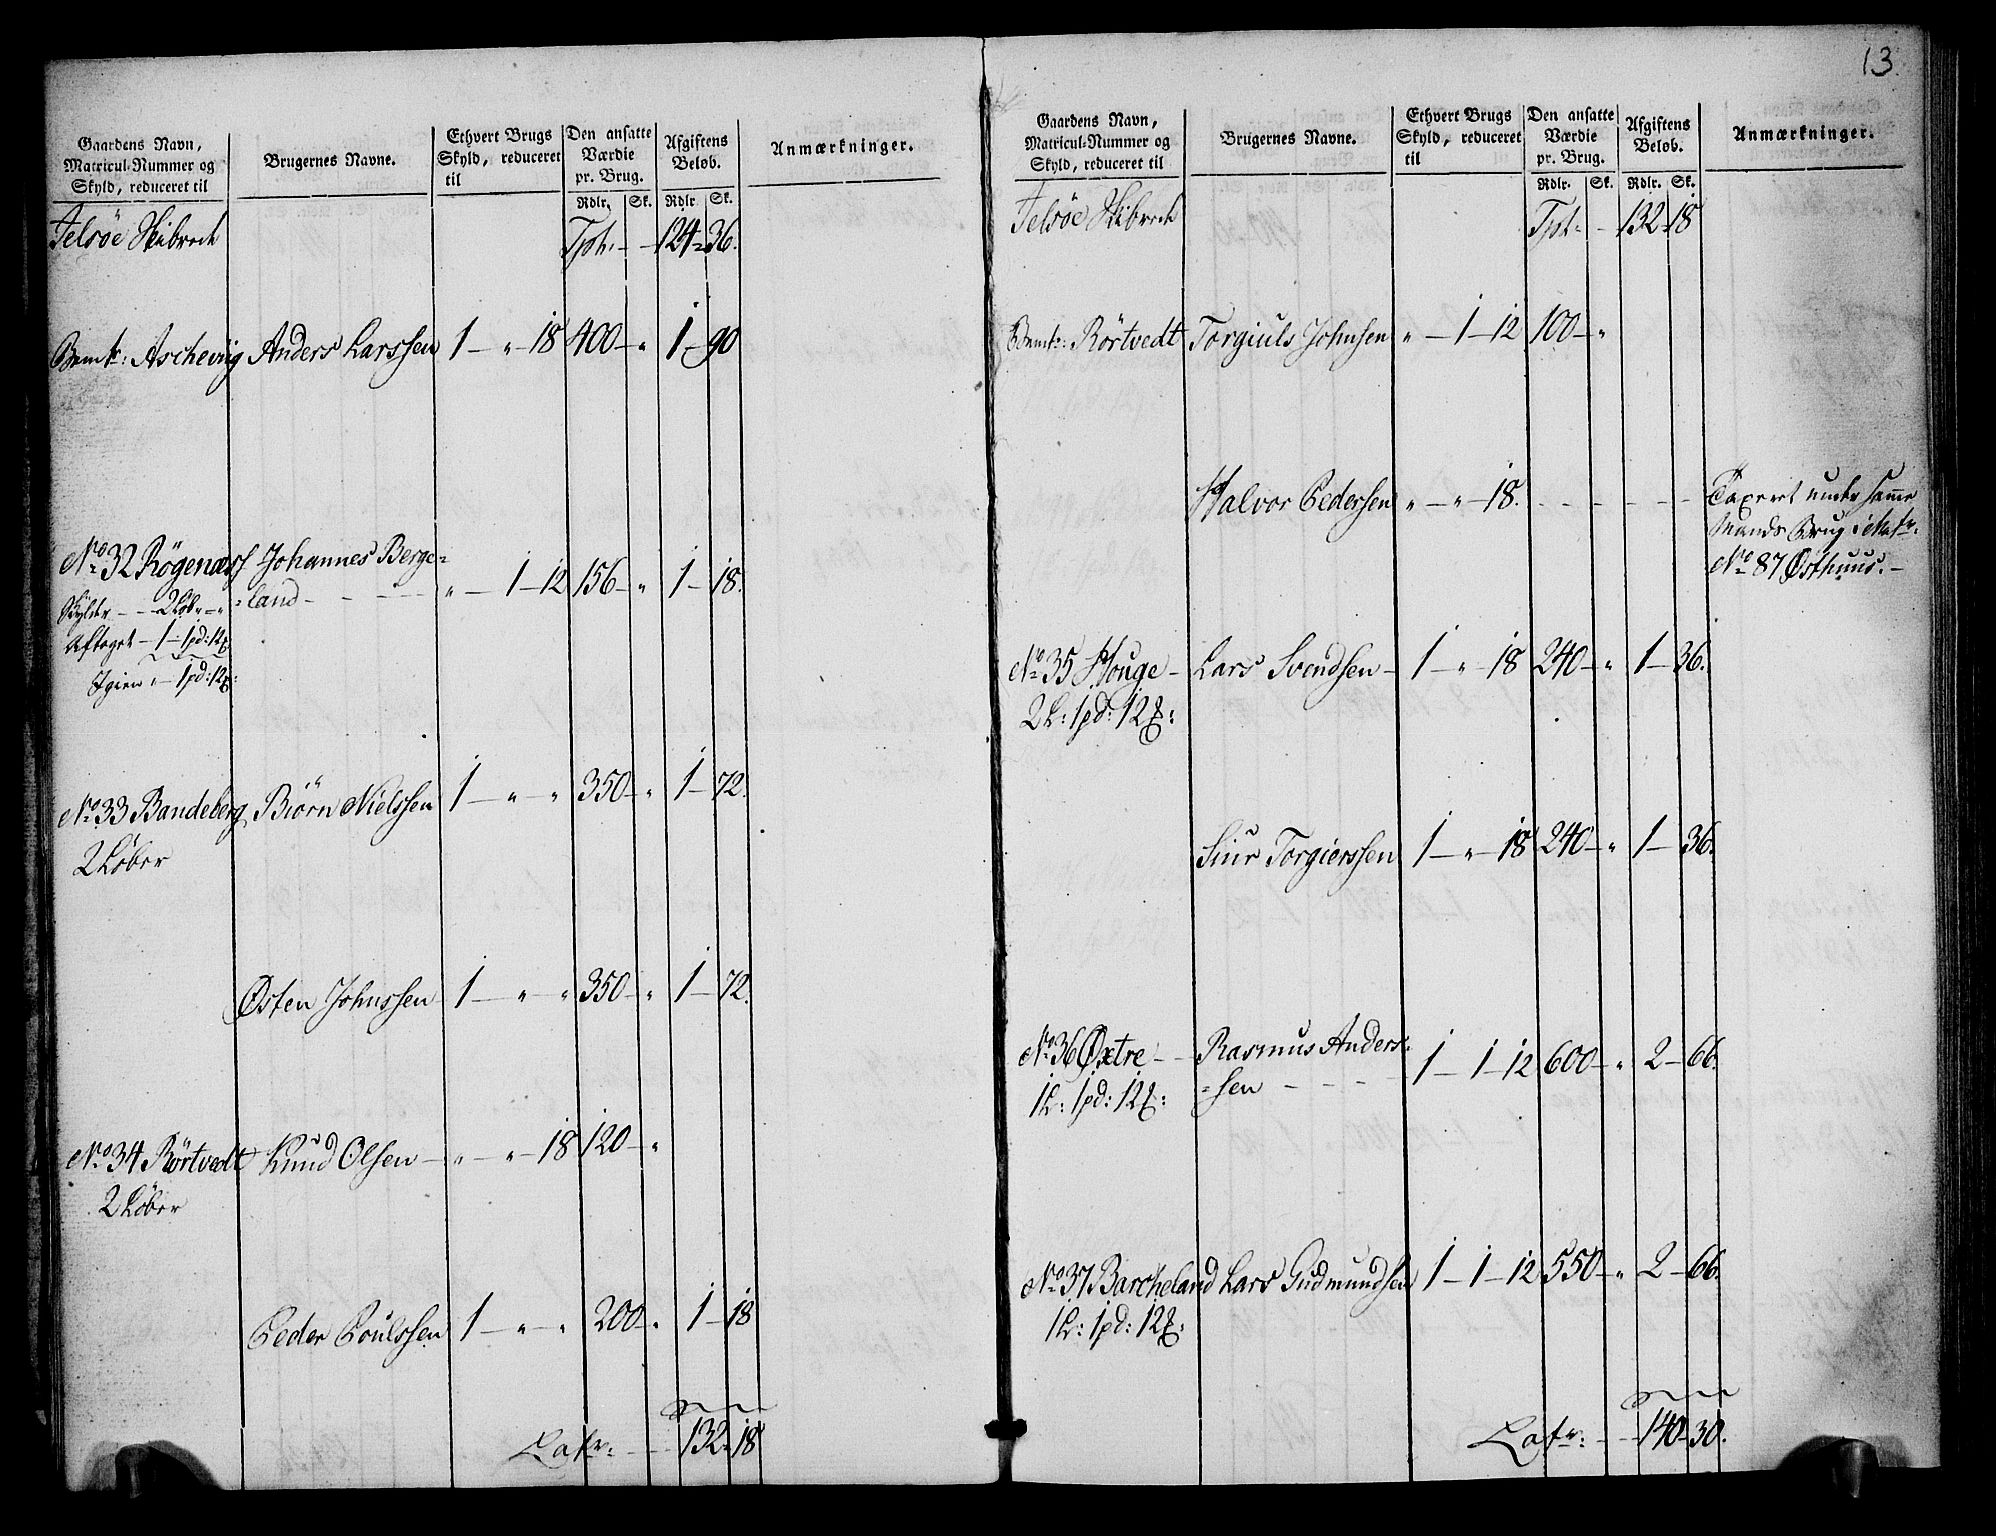 Gaardens Navn,
Matricul-Nummer og
Skyld, reduceret til
Brugernes Navne.
Ethvert Brugs
Skyld, reduceret
til
Den ansatte
Værdie
pr. Brug.
Rdlr. Sk.
Afgiftens
Beløb.
Rdlr. Sk.
Anmærkninger.
Jelsöe Skibrede Tpt: - 124 - 36.
Bemte: Aschevig Anders Larssen 1 - " - 18 400 - " 1 - 90
No 32 Rögenæs Johannes Berge=
=land - - - " - 1 - 12 156 - " 1 - 18.
Skylder - - 2 Løb - " - "
Aftaget - 1 - 1pd: 12℔
Igien " - 1pd: 12℔:
No 33 Bandeberg Biörn Nielssen 1 - " - " 350 - " 1 - 72.
2 Løber
Østen Johnssen 1 - " - " 350 - " 1 - 72.
No 34 Rörtvedt Knud Olsen - " - " - 18 120 - "
2 Løber
Peder Poulssen 1 - " - " 200 - " 1 - 18
Latr: - - 132 - 18
13.
Gaardens Navn,
Matricul-Nummer og
Skyld, reduceret til
Brugernes Navne.
Ethvert Brugs
Skyld, reduceret
til
Den ansatte
Værdie
pr. Brug.
Rdlr. Sk.
Afgiftens
Beløb.
Rdlr. Sk.
Anmærkninger.
Jelsöe Skibrede Tpt: - 132 - 18
Bemte: Rörtvedt Torgiuls Johnsen " - 1 - 12 100 - "
Halvor Pedersen " - " - 18. - - - - - Taxeret under samme
Mands Brug i Matr:
No 87 Østhuus. -
No 35 Houge - Lars Svendsen - 1 - " - 18 240 - " 1 - 36.
2L: 1pd: 12℔:
Siur Torgierssen 1 - " - 18 240 - " 1 - 36.
No 36 Øxtre - - Rasmus Anders=
=sen - - - 1 - 1 - 12 600 - " 2 - 66.
1L: 1pd: 12℔:
No 37 Barcheland Lars Gudmundsen 1 - 1 - 12 550 - " 2 - 66.
1L: 1pd: 12℔:
Latr: - - 140 - 30.